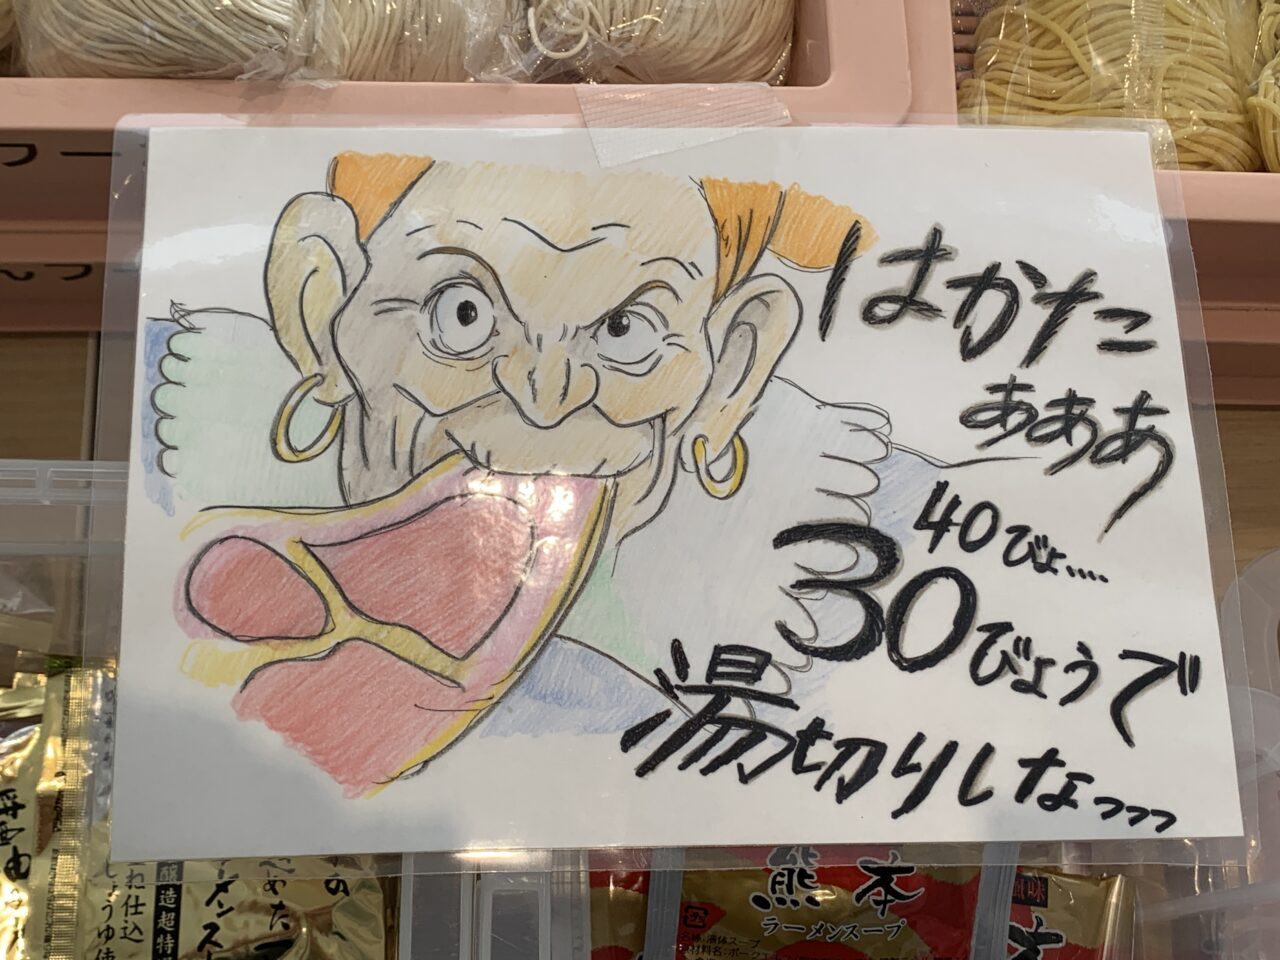 はかたこ
あああ
40びょ....
30びょうで
湯切りしなっっっ
熊本
ラーメンスープ
醸造超特
名称:液体スープ
風味